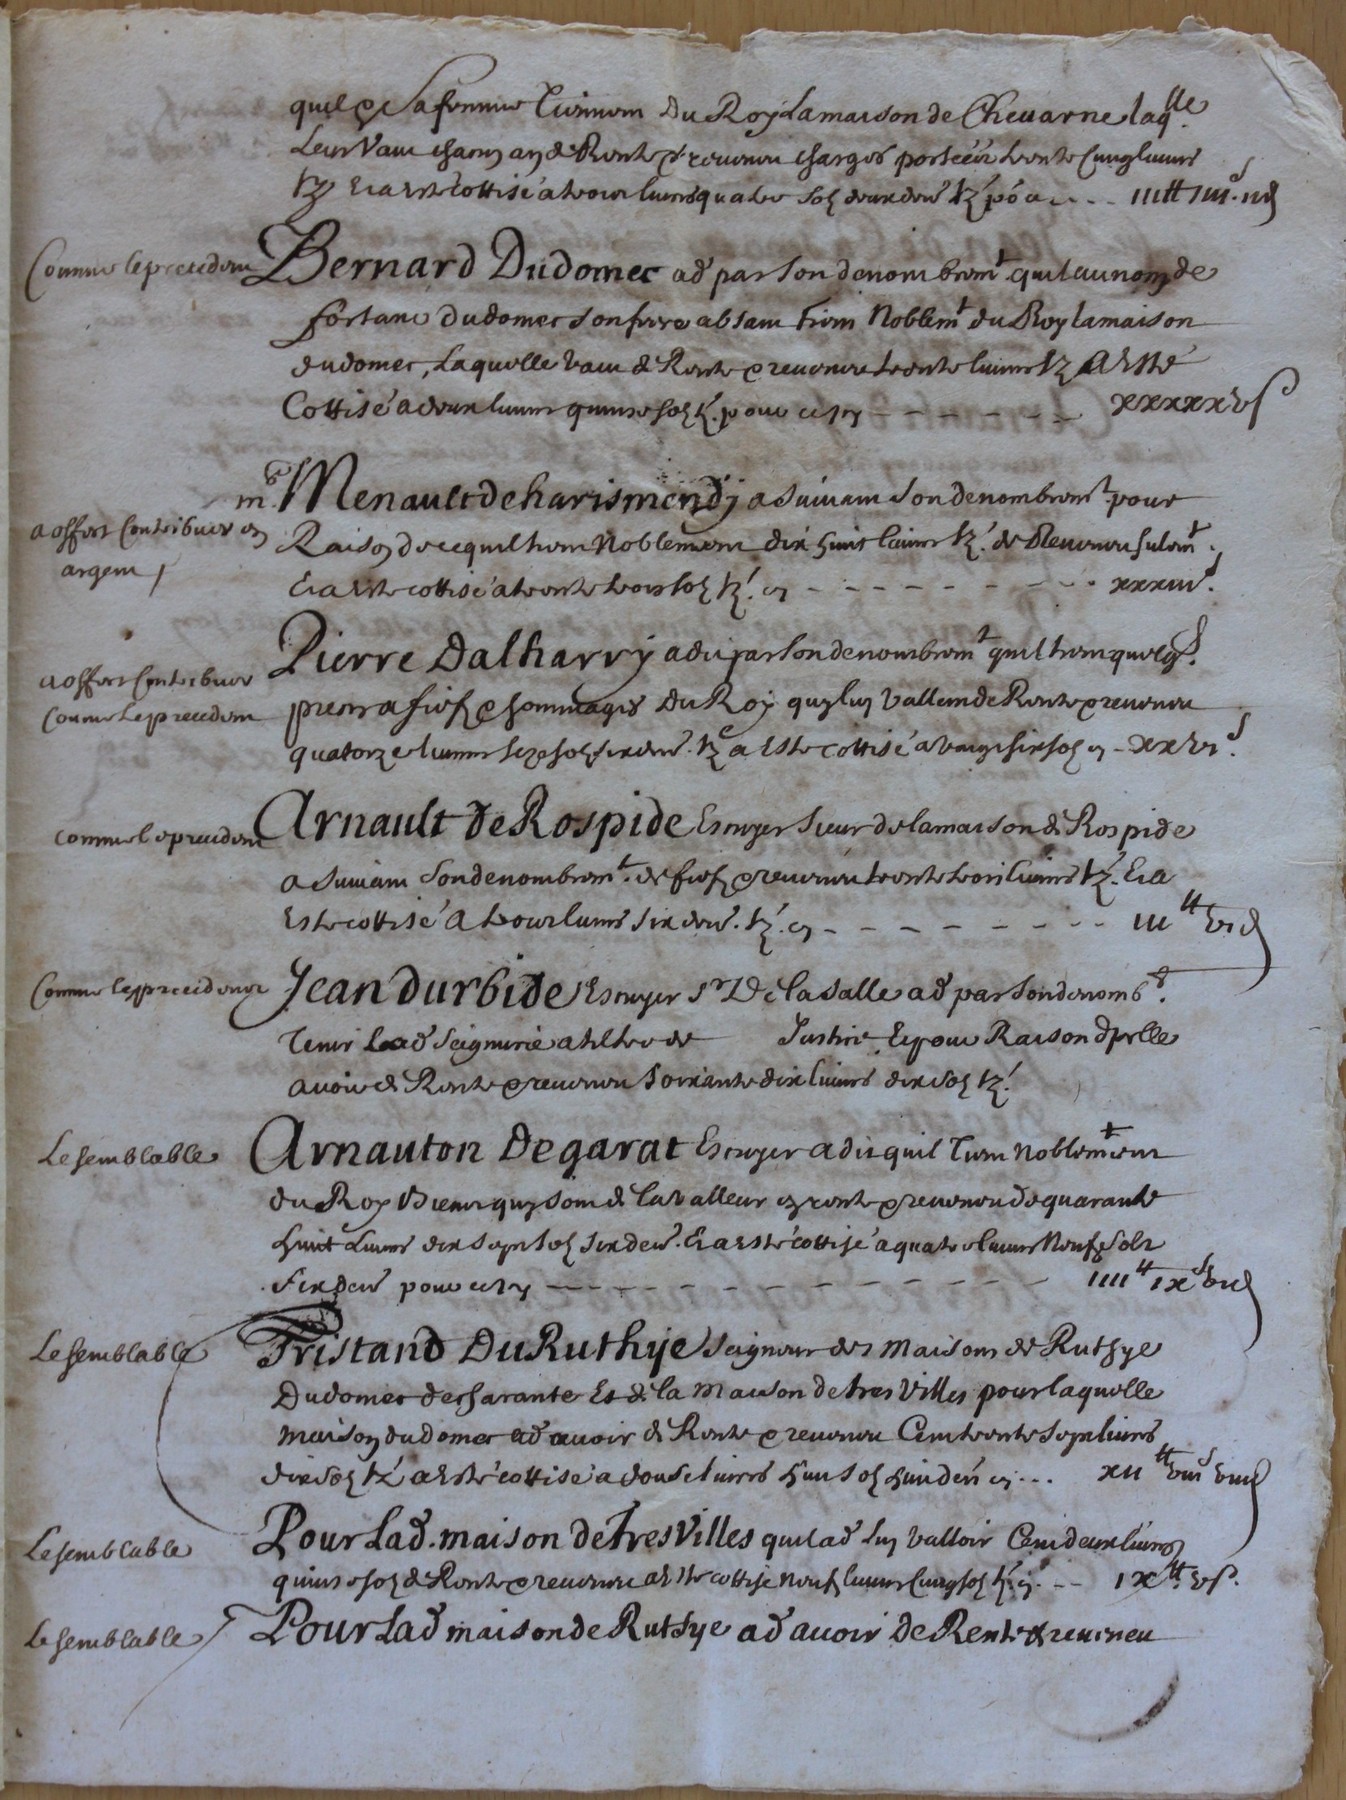 quil & sa femme tiennent du Roy la maison de Cheuarne laqlle
Leur vaut chacun an de Rente & reuenu charges portées trente cinq liures
tz Et a esté cottisé a trois liures quatre solz deux den. tz po. a ... III tt IIII s. II d
Comme le precedent Bernard Dudomec a d. par son denombremt. quil au nom de
fortane dudomec son frere absant tient Noblemt. du Roy la maison
dudomec, Laquelle vaut de Rente & reuenu trente liures tz A esté
Cottisé a deux liures quinze solz tz. pour cecy - - - - - - xxxxxv s
me. Menault de harismendj a suiuant son denombremt. pour
a offert Contribuer en Raison de ce quil tient Noblement dix huict liures tz. de Reuenu seulemt.
argent / Et a esté cottisé a trente trois solz tz. cy - - - - - - xxxiii s.
Pierre Dalharry a dit par son denombremt. quil tient quelqs.
a offert Contribuer
Comme le precedent pieces a fief & hommages Du Roy quy luy vallent de Rente & reuenu
quatorze liures seze solz six den. tz a esté cottisé a vingt six solz cy - xxvi s.
Comme le precedent Arnault de Rospide Escuyer sieur de la maison de Rospide
a suiuant son denombremt. de fief & reuenu trente trois liures tz. Et a
Esté cottisé a trois liures six den. tz. cy - - - - - - - III tt vi d
Comme le precedent Jean Durbide Escuyer sr De la salle a d. par son denombt.
tenir lad. seigneurie a tiltre de Justice Et pour Raison dicelle
auoir de Rente & reuenu soixante dix liures dix solz tz.
Le semblable Arnauton Degarat Escuyer a dit quil tient noblement
du Roy Biens quy sont de la valleur en rente & reuenu de quarante
huict liures dix sept solz six den. Et a esté cottisé a quatre liures Neuf solz
six den. pour cecy - - - - - - - - - IIII tt IX s vi d
Le semblable Tristand Du Ruthye seigneur des maisons de Ruthye
Dudomec decharante Et de la maison de tresvilles pour laquelle
maison dudomec a d. auoir de Rente & reuenu Cent trente sept liures
dix solz tz a esté cottisé a douse liures huit solz huit den. cy ... XII tt viii s viii d
Le semblable Pour Lad. maison de tresvilles quil a d. luy valloir Cent deux liures
quinze solz de Rente & reuenu a esté cottisé neuf liures cinq solz tz. cy. -- IX tt. v s.
Le semblable Pour Lad maison de Ruthye a d auoir De Rente & reueneu